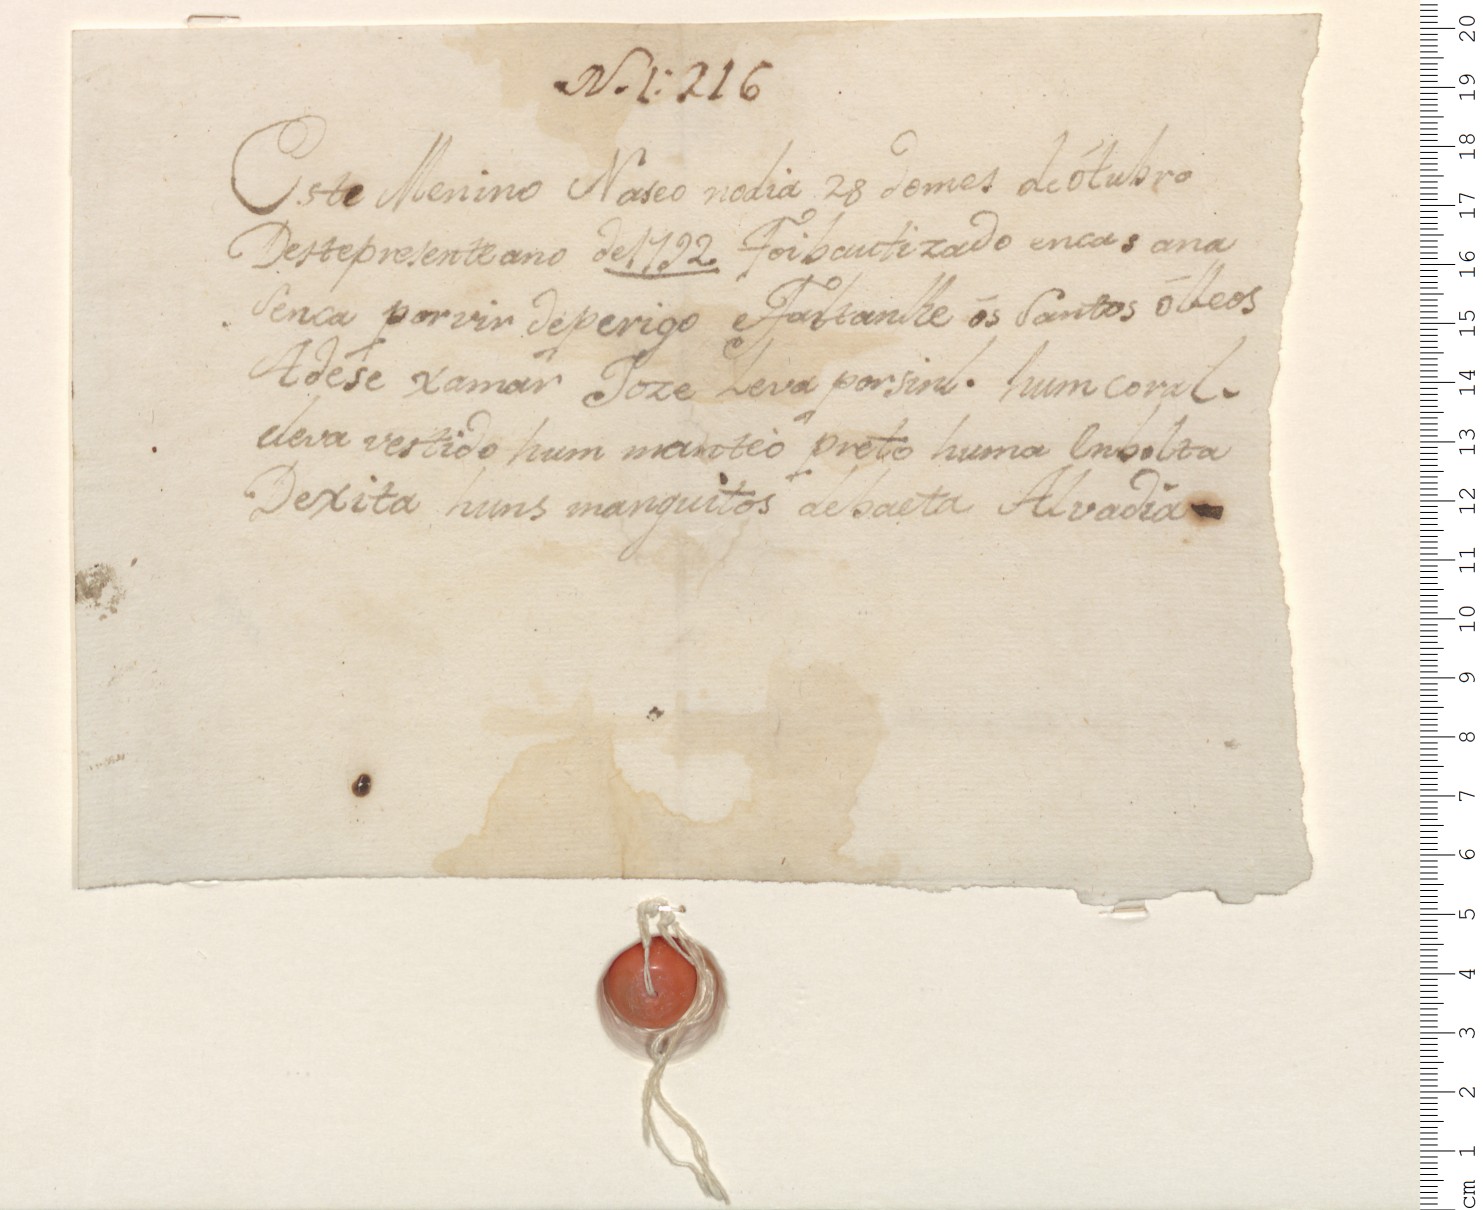 N. 1: 216
Este Menino Naseo nodia 28 domes de ótubro
Destepresenteano de1792 Foibautizado encas ana
senca porvir deperigo eFaltanlhe ós Santos óLeos
Adese xamar Joze Leva porsinl. hum coral.
eleva vestido hum manteo preto huma Enbolta
Dexita huns manguitos debaeta Alvadia
20
19
18
17
16
15
14
13
12
11
10
9
8
7
6
5
4
3
2
1
cm